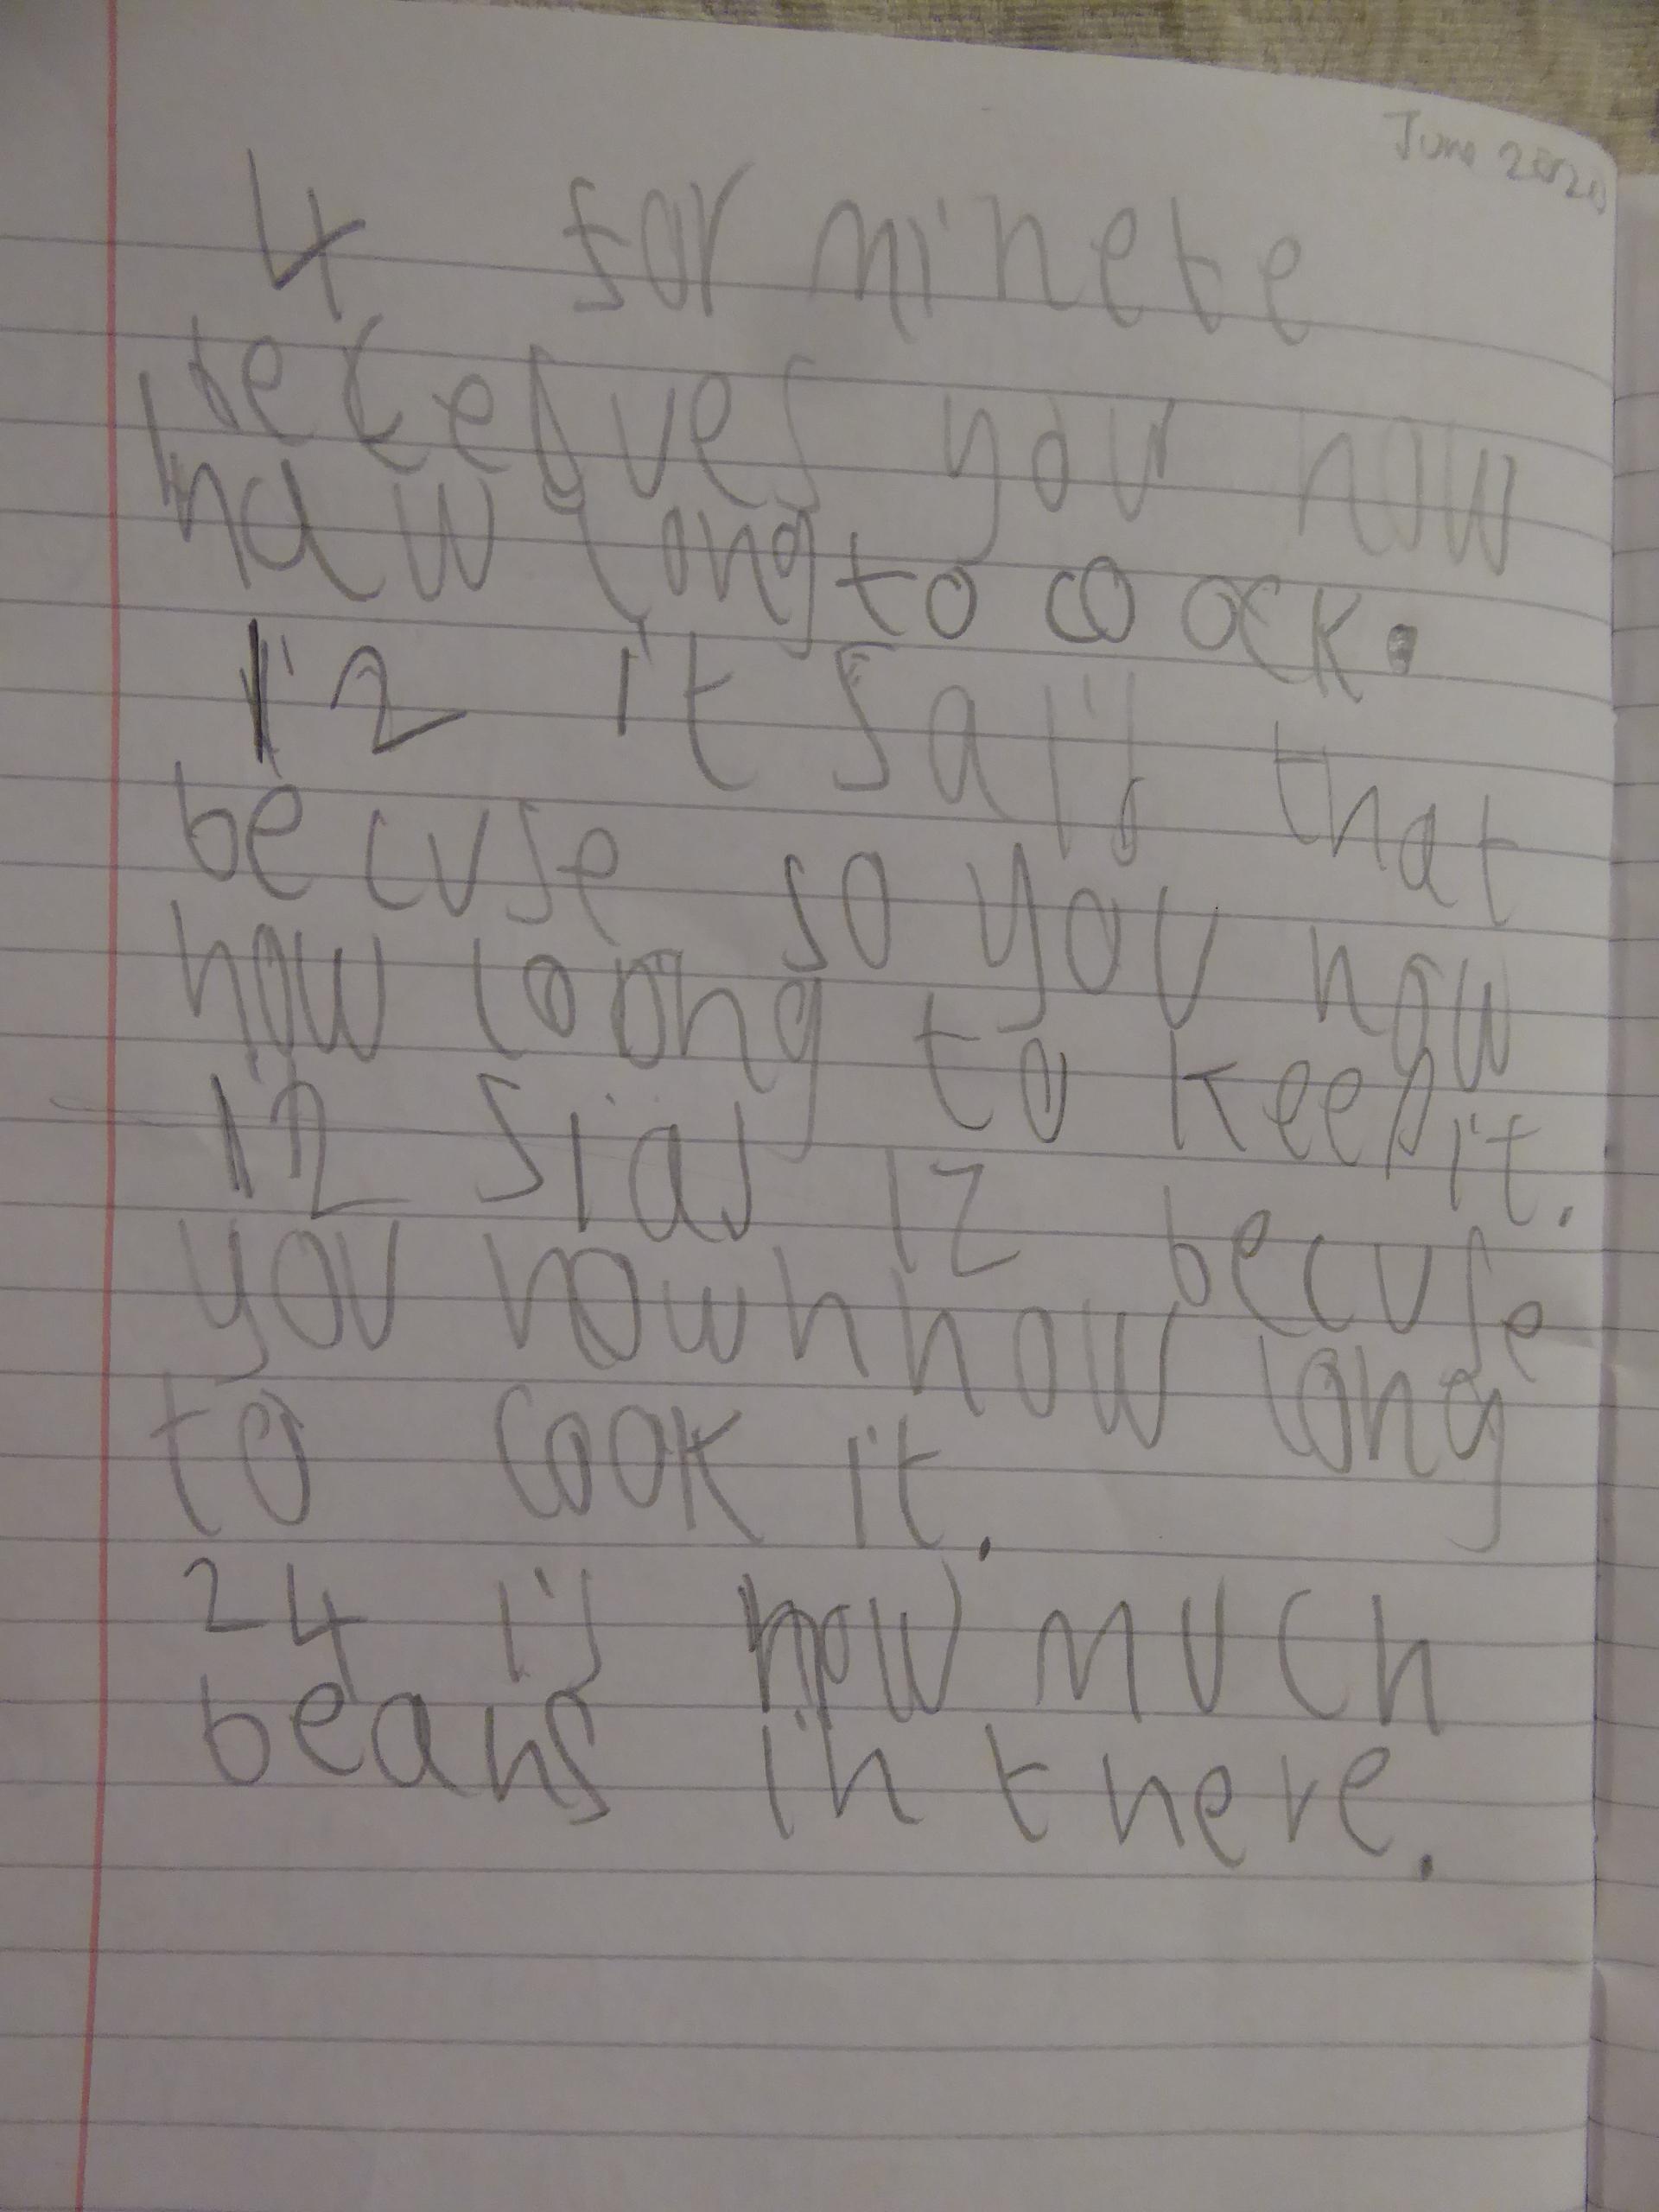 June 2020
4 for minete
beceaves you now
haw long to coock.
12 it sais that
becuse so you now
how loong to keep it.
12 sias 12 becuse
you now how long
to cook it.
24 is how much
beans in there.